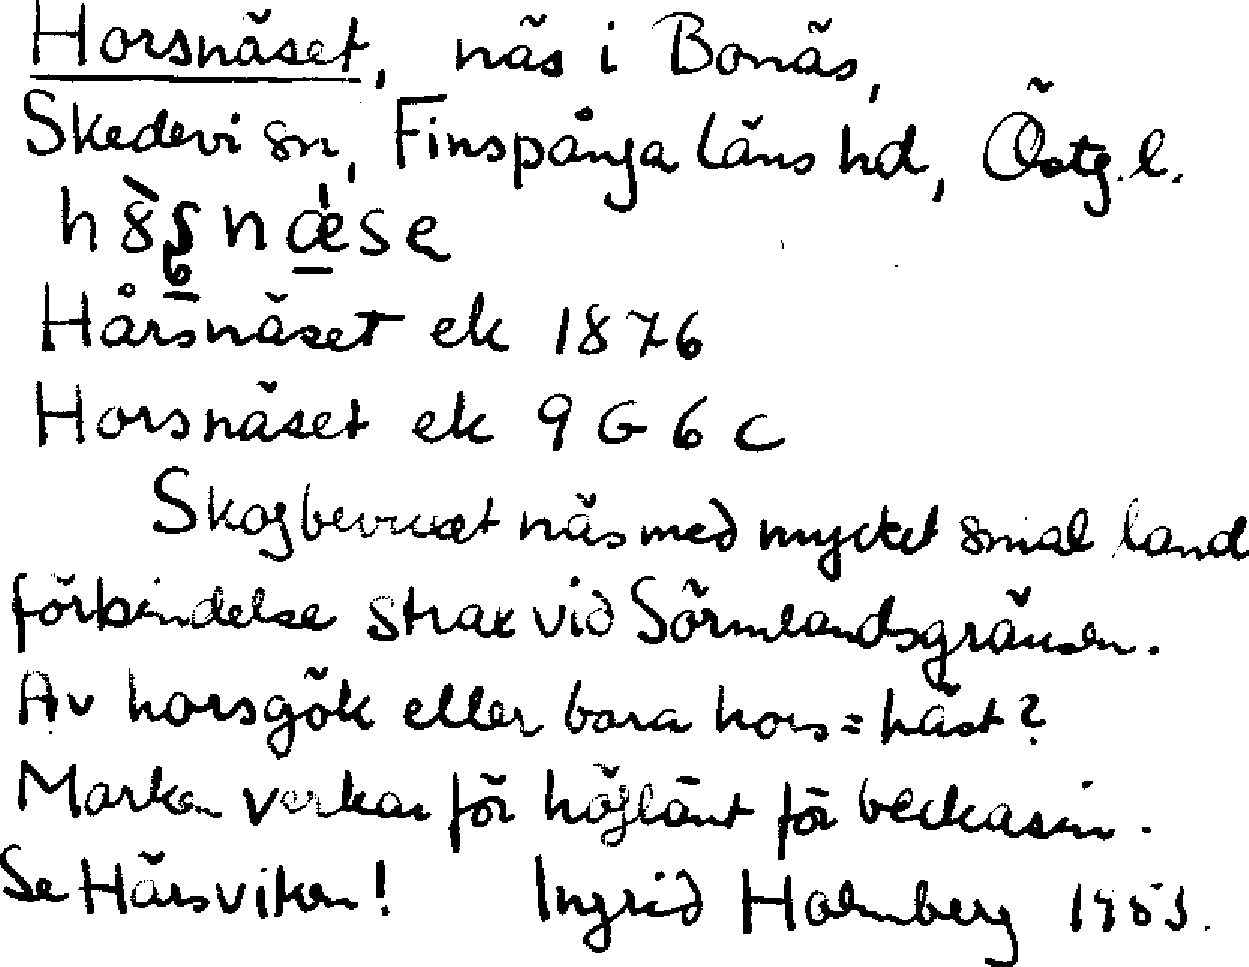 Horsnäset, näs i Bonäs,
Skedevi sn, Finspånga läns hd, Östg.l.
Hårsnäset ek 1876
Horsnäset ek 9G6c
Skogbevuxet näs med mycket smal land
förbindelse strax vid Sörmlandsgränsen.
Av horsgök eller bara hors = häst?
Marken verkar för höglänt för beckasin.
Se Hårsviken! Ingrid Holmberg